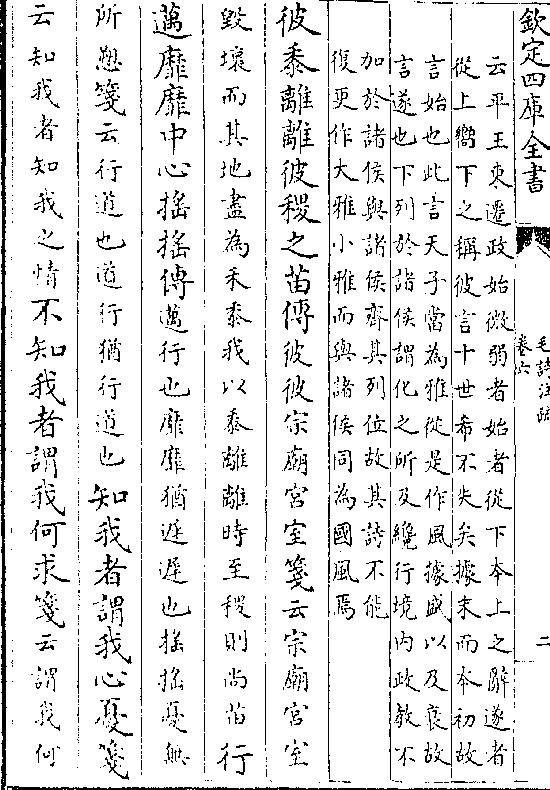 欽定四庫全書
毛詩注疏
卷六
二
云平王東遷政始微弱者始者從下本上之辭遂者
從上嚮下之稱彼言十世希不失矣據末而本初故
言始也此言天子當為雅從是作風據盛以及衰故
言遂也下列於諸侯謂化之所及纔行境內政教不
加於諸侯與諸侯齊其列位故其詩不能
復更作大雅小雅而與諸侯同為國風焉
彼黍離離彼稷之苗傳彼彼宗廟宮室箋云宗廟宮室
毀壞而其地盡為禾黍我以黍離離時至稷則尚苗行
邁靡靡中心搖搖傳邁行也靡靡猶遲遲也搖搖憂無
所愬箋云行道也道行猶行道也知我者謂我心憂箋
云知我者知我之情不知我者謂我何求箋云謂我何